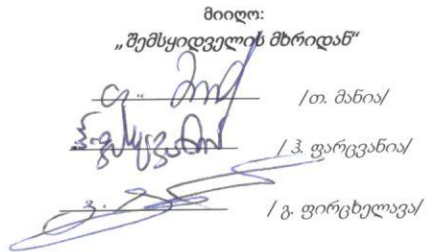 მიიღო:
„შემსყიდველის მხრიდან“
/თ. მანია/
/ პ. ფარცვანია/
/ გ. ფირცხელავა/